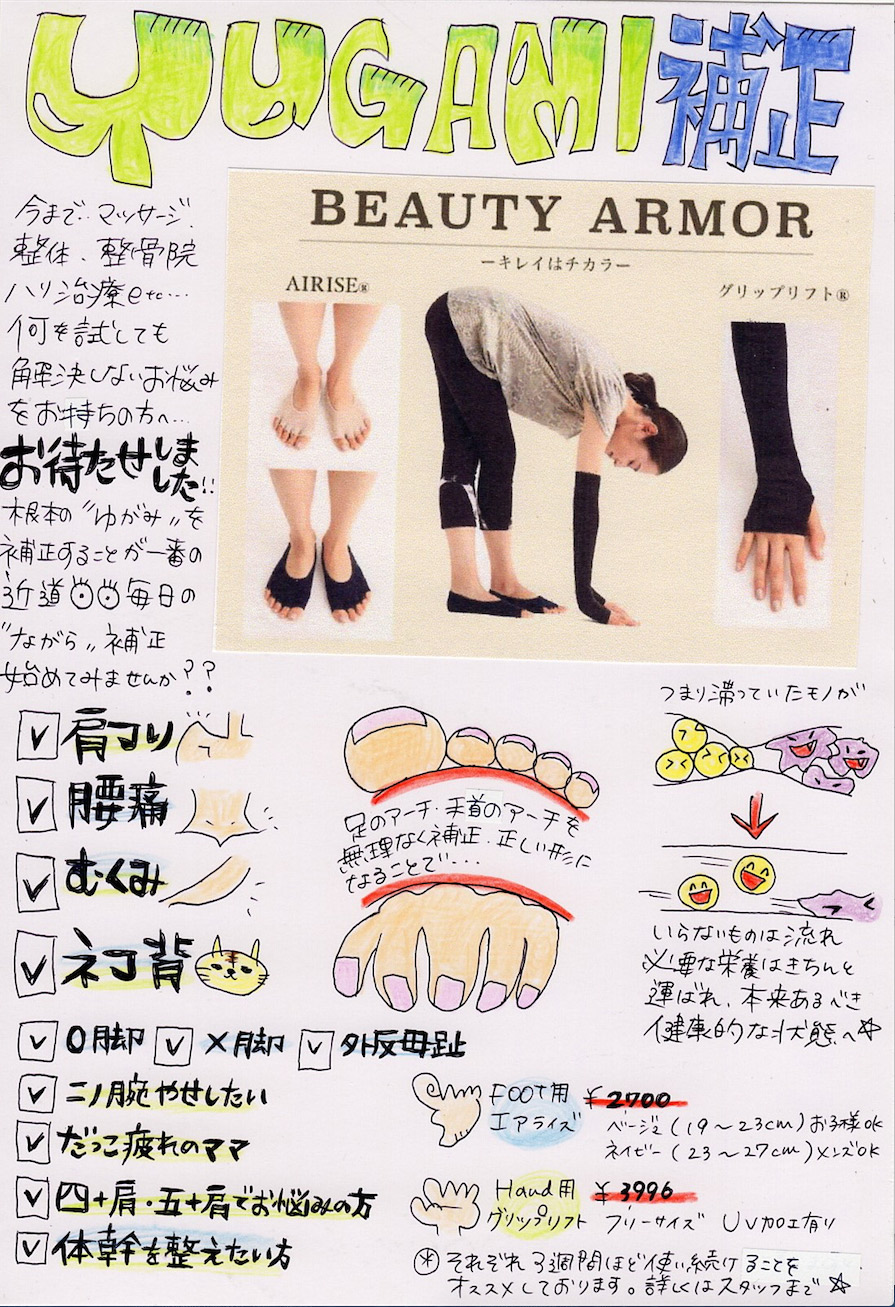 YUGAMI補正
今まで…マッサージ、
整体、整骨院
ハリ治療etc…
何を試しても
解決しないお悩み
をお持ちの方へ…
お待たせしま
した!!
根本の〝ゆがみ〟を
補正することが一番の
近道 毎日の
〝ながら〟補正
始めてみませんか??
BEAUTY ARMOR
ーキレイはチカラー
AIRISE®
グリップリフト®
肩コリ
腰痛
むくみ
ネコ背
O脚
X脚
外反母趾
二ノ腕やせしたい
だっこ疲れのママ
四十肩・五十肩でお悩みの方
体幹を整えたい方
足のアーチ・手首のアーチを
無理なく補正。正しい形に
なることで…
つまり滞っていたモノが
いらないものは流れ
必要な栄養はきちんと
運ばれ、本来あるべき
健康的な状態へ☆
FOOT用
エアライズ
¥2700
ベージュ(19~23cm)お子様OK
ネイビー(23~27cm)メンズOK
Hand用
グリップリフト
¥3996
フリーサイズ UV加工有り
※それぞれ3週間ほど使い続けることを
オススメしております。詳しくはスタッフまで☆